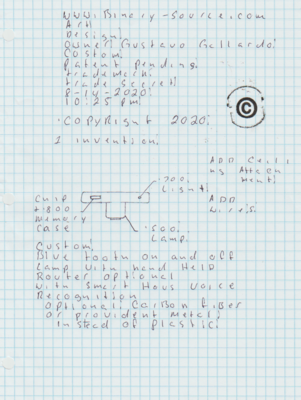 WWW.Binary-Source.com
Art
Design.
Owner: Gustavo Gallardo.
Custom.
Patent pending.
Trademark.
Trade Secret!
8-14-2020!
10:25 pm.
©
COPYRight 2020!
1 invention.
ADD Ceili
ng Attach
ment!
.200.
Light!
Chip
+.800
Memory
Case
ADD
wires.
.500.
Lamp.
Custom.
Blue tooth on and off
Lamp with hand Held
Router Optional
with Smart Hous Voice
Recognition
Optional: Carbon fiber
or provident Metal!
Insted of plastic.